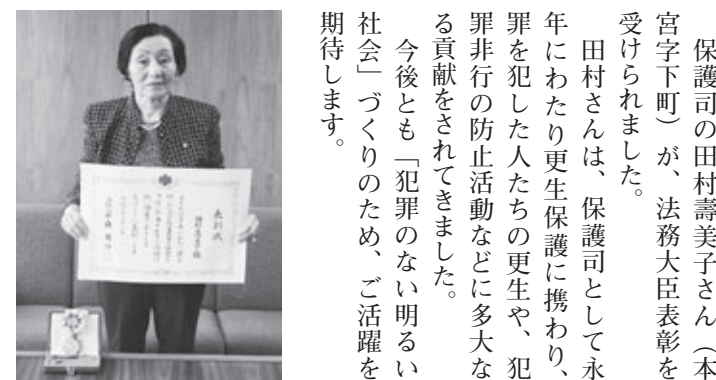 保護司の田村壽美子さん（本
宮字下町）が、法務大臣表彰を
受けられました。
田村さんは、保護司として永
年にわたり更生保護に携わり、
罪を犯した人たちの更生や、犯
罪非行の防止活動などに多大な
る貢献をされてきました。
今後とも「犯罪のない明るい
社会」づくりのため、ご活躍を
期待します。
表彰状